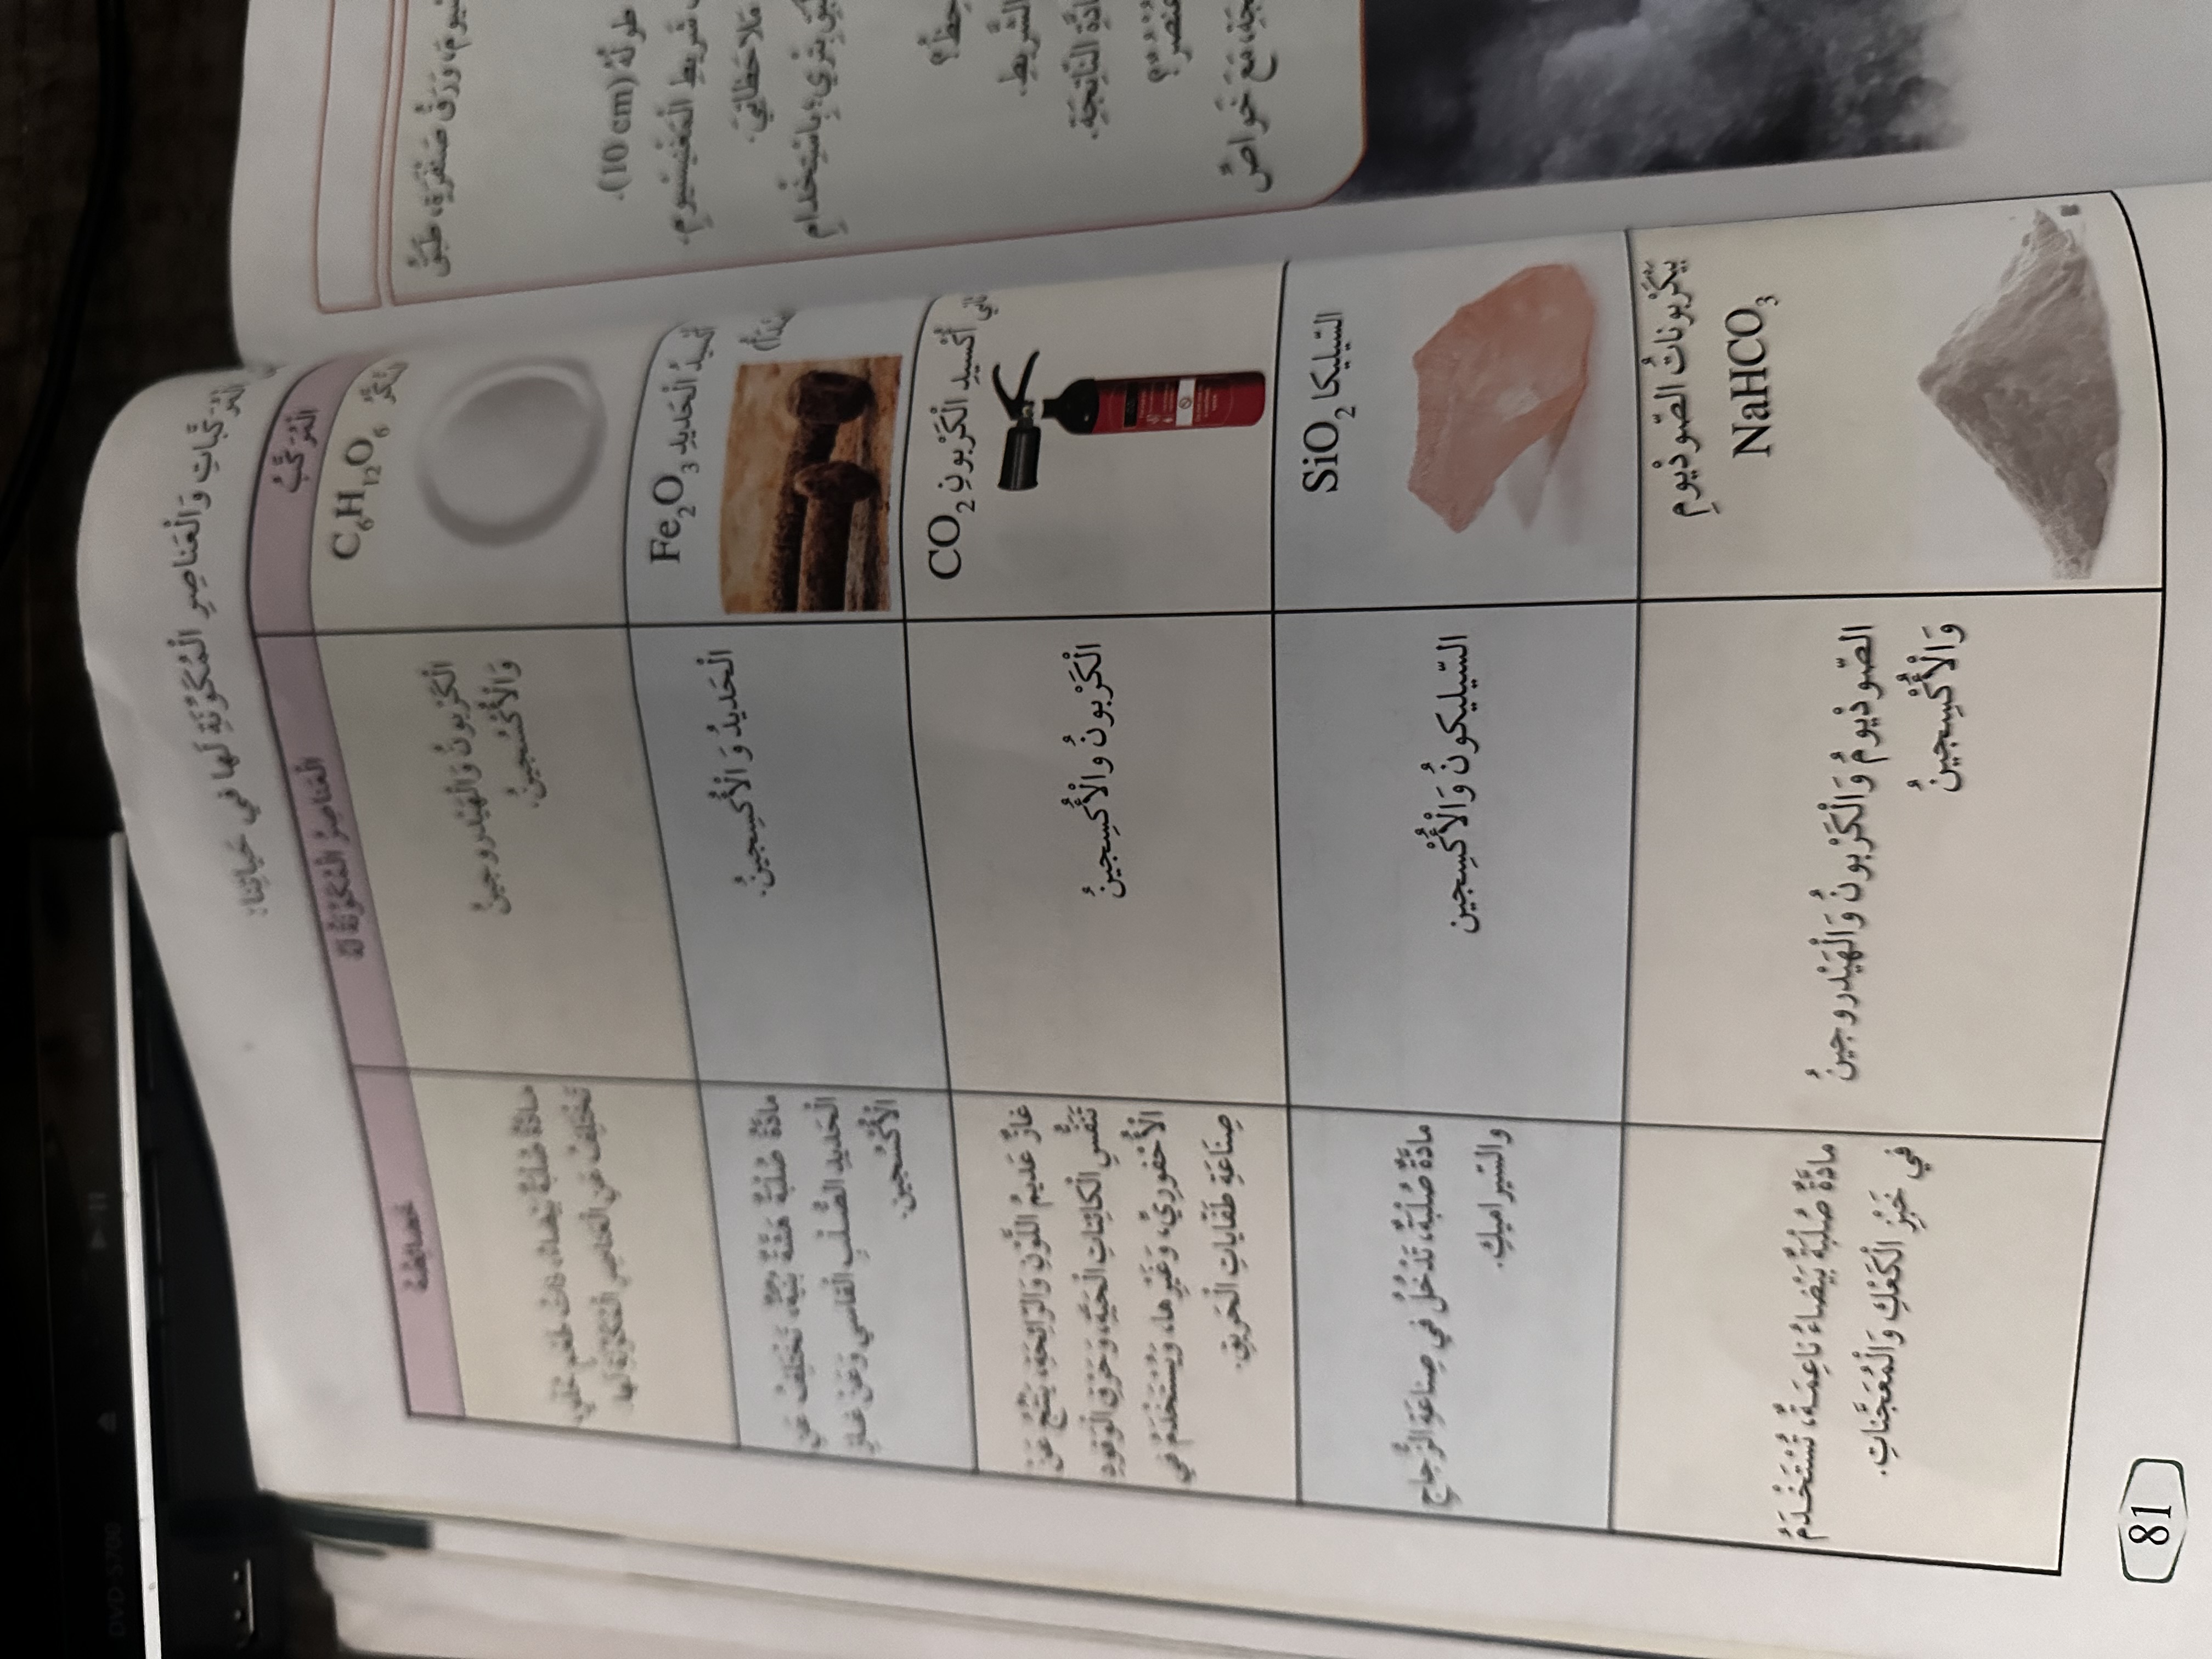 الْمُرَكَّباتِ وَالْعَناصِرِ الْمُكَوِّنَةِ لَها في حَياتِنا:
الْمُرَكَّبُ
الْعَناصِرُ الْمُكَوِّنَةُ لَهُ
خَصائِصُهُ
السُّكَّرُ C6H12O6
الْكَرْبونُ وَالْهَيْدروجينُ
وَالْأُكْسُجينُ.
مادَّةٌ صُلْبَةٌ بَيْضاءُ، ذاتُ طَعْمٍ حُلْوٍ
تَخْتَلِفُ عَنِ الْعَناصِرِ الْمُكَوِّنَةِ لَها.
أُكْسيدُ الْحَديدِ Fe2O3
الْحَديدُ وَالْأُكْسِجينُ.
مادَّةٌ صُلْبَةٌ هَشَّةٌ بُنِّيَّةٌ، تَخْتَلِفُ عَنِ
الْحَديدِ الصُّلْبِ الْقاسي وَعَنْ غازِ
الْأُكْسُجينِ.
أُكْسيدِ الْكَرْبونِ CO2
الْكَرْبونُ وَالْأُكْسِجينُ
غازٌ عَديمُ اللَّوْنِ وَالرّائِحَةِ، يَنْتُجُ عَنْ
تَنَفُّسِ الْكائِناتِ الْحَيَّةِ، وَحَرْقِ الْوَقودِ
الْأُحْفورِيِّ، وَغَيْرِها، وَيُسْتَخْدَمُ في
صِناعَةِ طَفّاياتِ الْحَريقِ.
السّيليكا SiO2
السّيليكونُ وَالْأُكْسِجين
مادَّةٌ صُلْبَةٌ، تَدْخُلُ في صِناعَةِ الزُّجاجِ
والسّيراميكِ.
بيكَرْبوناتُ الصّوديومِ
NaHCO3
الصّوديومُ وَالْكَرْبونُ وَالْهَيْدروجينُ
وَالْأُكْسِجينُ
مادَّةٌ صُلْبَةٌ بَيْضاءُ ناعِمَةٌ، تُسْتَخْدَمُ
في خَبْزِ الْكَعْكِ وَالْمُعَجَّناتِ.
81
وَرَقُ صَنْفَرَةٍ، طَبَقُ
طولُهُ (10 cm).
شَريطِ الْمَغْنيسْيومِ.
مُلاحَظاتي.
بِاسْتِخْدامِ
الشَّريطِ.
النّاتِجَةِ.
مَعَ خَواصِّ
DVD 5700